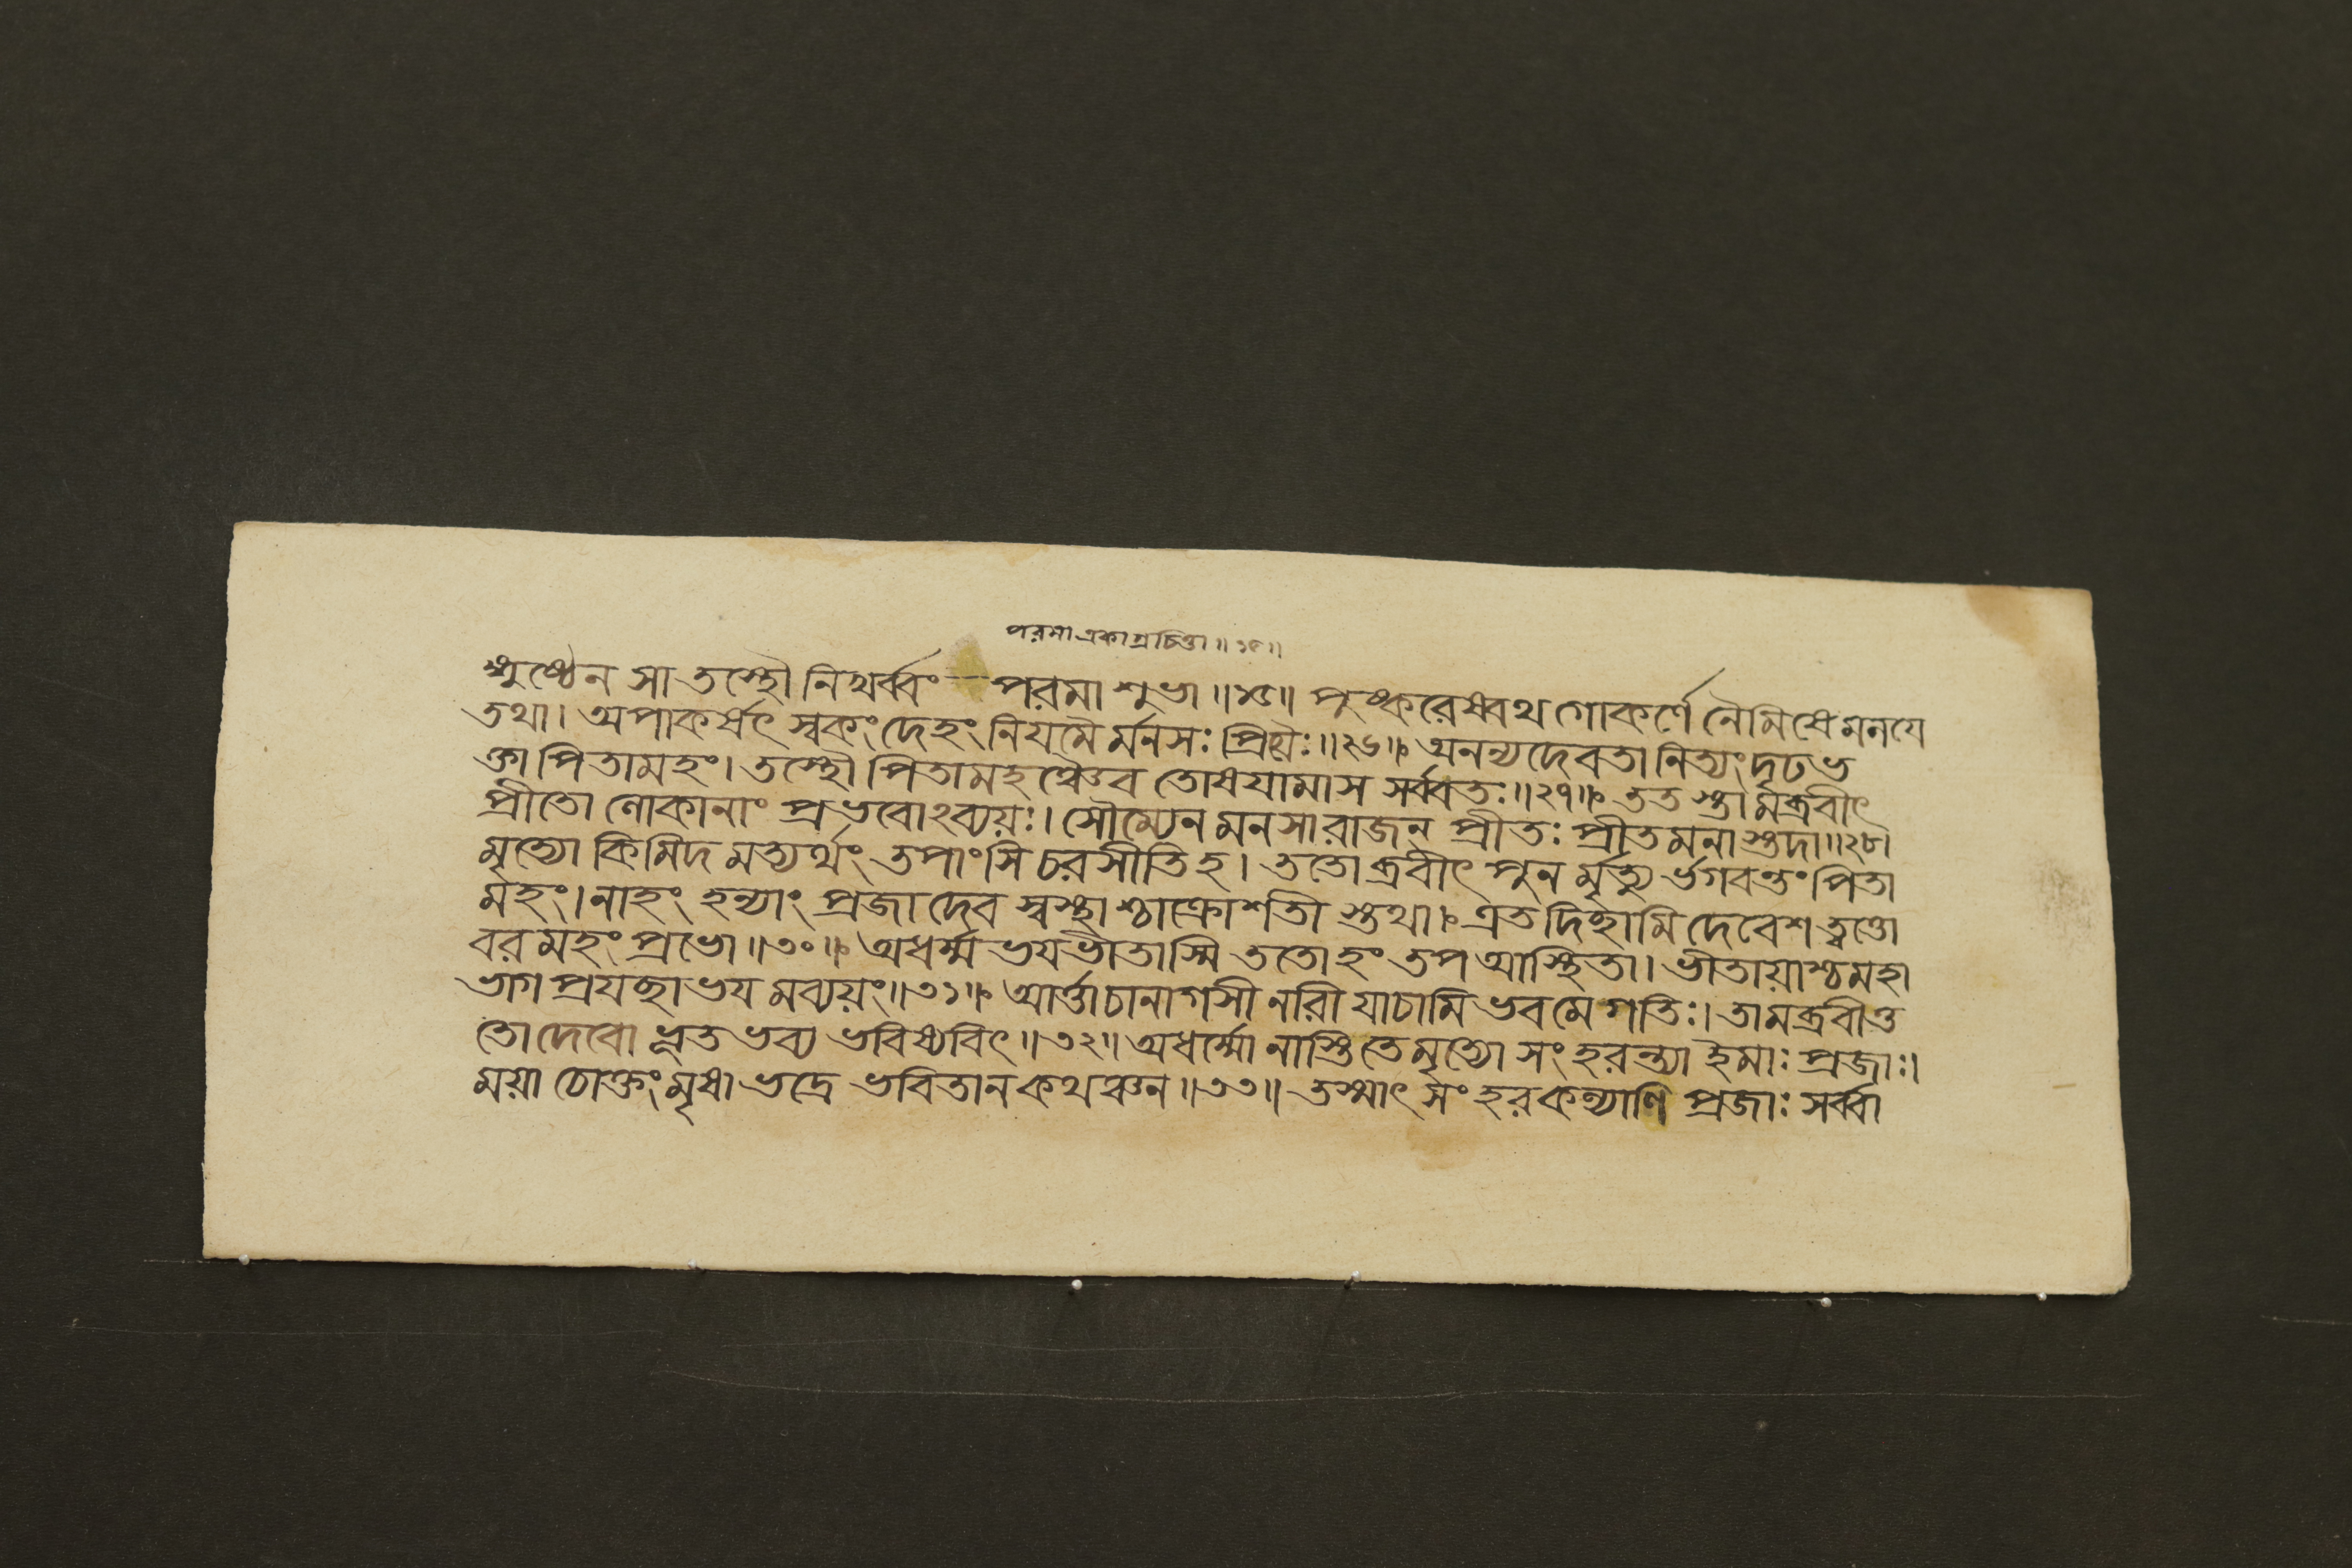 পরমা একাগ্রচিত্তা ॥২৫॥
ঙ্গুষ্ঠেন সা তস্থৌ নিখর্ব্বং পরমা শুভা ॥২৫॥ পুষ্করেষ্বথ গোকর্ণে নৈমিষে মলযে
তথা। অপাকর্ষৎ স্বকং দেহং নিয়মৈ র্মনসঃ প্রিয়ৈঃ॥২৬॥ অনন্যদেবতা নিত্যং দৃঢভ
ক্তা পিতামহং। তস্থৌ পিতামহ ঞ্চৈব তোষযামাস সর্ব্বতঃ॥২৭॥ তত স্তা মব্রবীৎ
প্রীতো লোকানাং প্রভবোঽব্যয়ঃ। সৌম্যেন মনসা রাজন্ প্রীতঃ প্রীতমনা স্তদা॥২৮।
মৃত্যো কিমিদ মত্যর্থং তপাংসি চরসীতি হ। ততো ব্রবীৎ পুন র্মৃত্যু র্ভগবন্তং পিতা
মহং। নাহং হন্যাং প্রজা দেব স্বস্থা শ্চাক্রোশতী স্তথা। এতদিচ্ছামি দেবেশ ত্বত্তো
বর মহং প্রভো॥৩০॥ অধর্ম্ম ভযভীতাস্মি ততো হং তপ আস্থিতা। ভীতায়াশ্চ মহা
ভাগ প্রযচ্ছা ভয মব্যয়ং॥৩১॥ আর্ত্তা চানাগসী নারী যাচামি ভব মে গতিঃ। তামব্রবীত্ত
তো দেবো ভূত ভব্য ভবিষ্যবিৎ॥৩২॥ অধর্ম্মো নাস্তি তে মৃত্যো সংহরন্ত্যা ইমাঃ প্রজাঃ।
ময়া চোক্তং মৃষা ভদ্রে ভবিতা ন কথঞ্চন॥৩৩॥ তস্মাৎ সংহর কল্যাণি প্রজাঃ সর্ব্বা